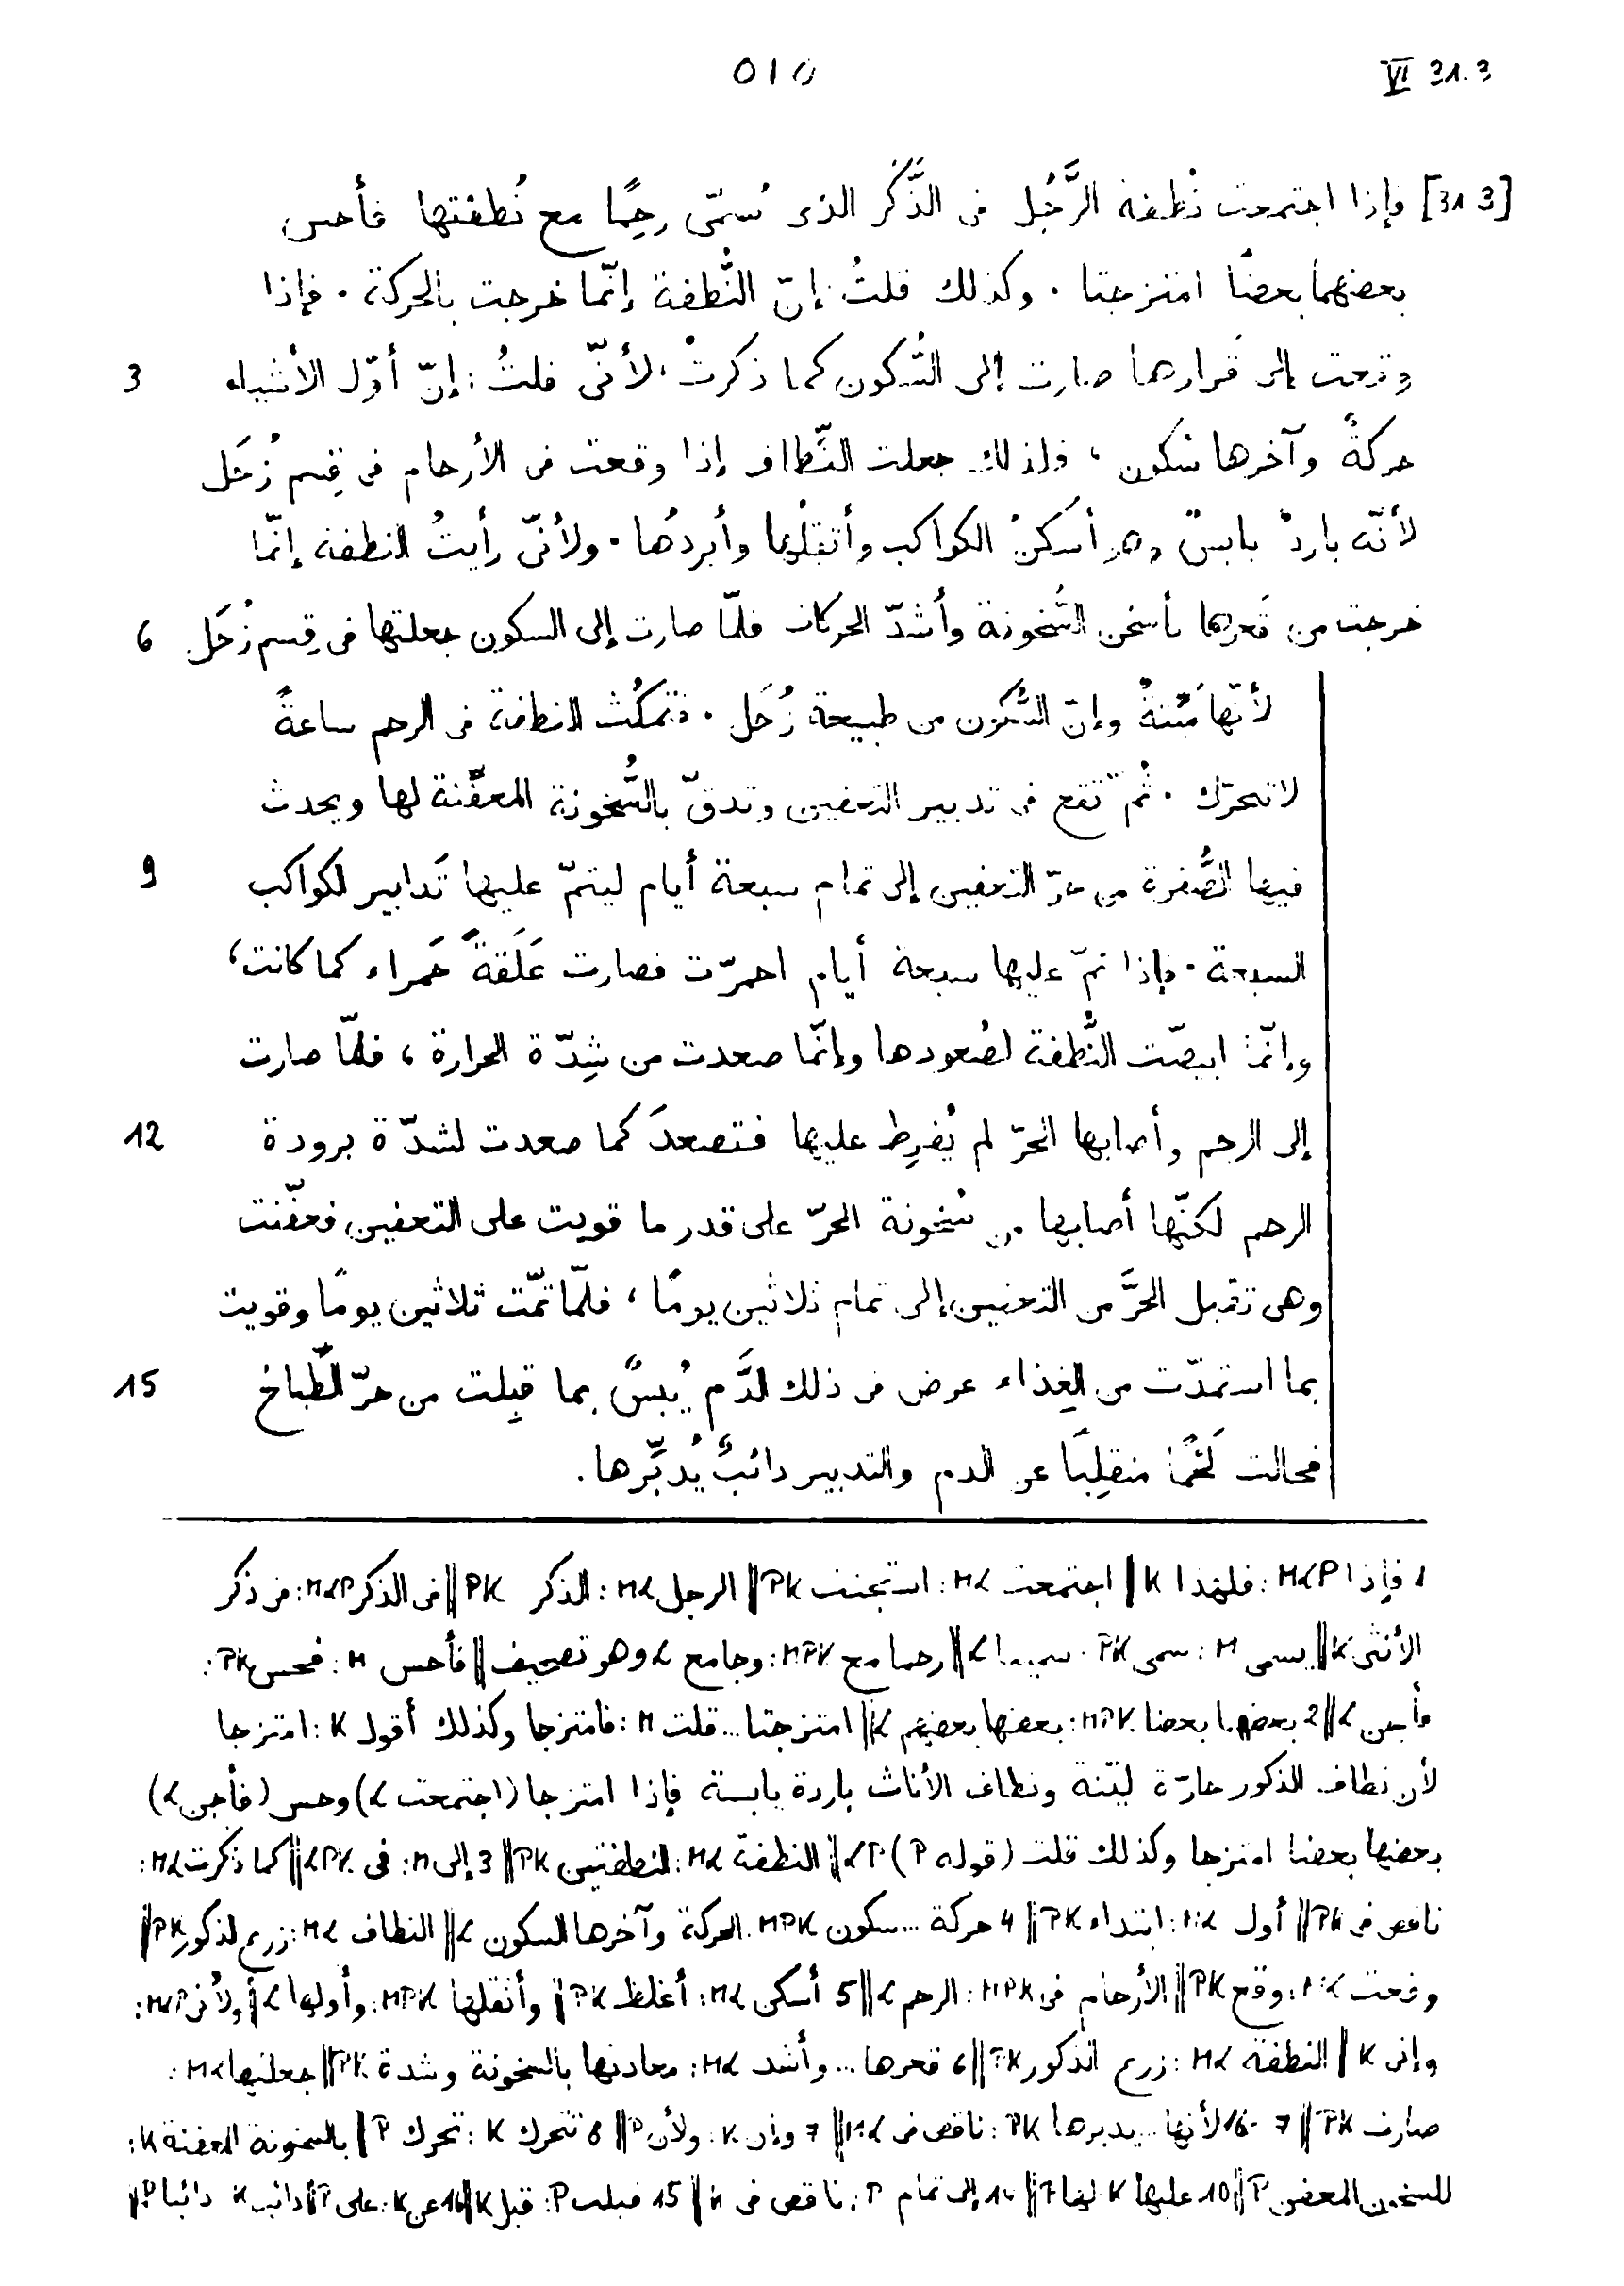 VI 31.3
٥١٥
[31 3] فإذا اجتمعت نُطفة الرَّجُل فى الذَّكَر الذى يُسمّى رحِمًا مع نُطفتها فأحس
بعضهما بعضًا امتزجتا . وكذلك قلتُ إنّ النُّطفة إنّما خرجت بالحركة . فإذا
وقعت إلى قَرارها صارت إلى السُّكون كما ذكرتُ ، لأنّى قلتُ : إنّ أوّل الأشياء 3
حركةٌ وآخرها سُكون ، ولذلك جعلت النِّطاف إذا وقعت فى الأرحام فى قِسم زُحَل
لأنّه باردٌ يابسٌ وهو أسكنُ الكواكب وأثقلُها وأبردُها . ولأنّى رأيتُ النطفة إنّما
خرجت من قَعرها بأسخن السُّخونة وأشدّ الحركات فلمّا صارت إلى السكون جعلتها فى قِسم زُحَل 6
لأنّها مَيّتةٌ وإنّ السُّكون من طبيعة زُحَل . فتمكُث النطفة فى الرحم ساعةً
لا تتحرّك . ثُمّ تقع فى تدبير التعفين وتدقّ بالسُّخونة المعفّنة لها ويحدث
فيها الصُّفرة من حرّ التعفين إلى تمام سبعة أيام ليتمّ عليها تَدابير الكواكب 9
السبعة . فإذا تمّ عليها سبعة أيام احمرّت فصارت عَلَقةً حَمراء كما كانت ،
وإنّما ابيضّت النُّطفة لصُعودها وإنّما صعدت من شِدّة الحرارة ، فلمّا صارت
إلى الرحم وأصابها الحرّ لم يُفرِط عليها فتصعدَ كما صعدت لشدّة برودة 12
الرحم لكنّها أصابها من سُخونة الحرّ على قدر ما قويت على التعفين فعفّنت
وهى تقبل الحرَّ من التعفين إلى تمام ثلاثين يومًا ، فلمّا تمّت ثلاثين يومًا وقويت
بما استمدّت من الغِذاء عرض فى ذلك الدَّم يُبسٌ بما قبِلت من حرّ الطّباخ 15
فحالت لَحْمًا منقلِبًا عن الدم والتدبير دائبٌ يُدبِّرها .
1 فإذا MαP : فلهذا K || اجتمعت Mα : استجنت PK || الرجل Mα : الذكر PK || فى الذكر MαP : فى ذكر
الأنثى K || يسمى M : سمى PK . α || رحما مع MPK : وجامع α وهو تصحيف || فأحس M : فحس PK :
α || 2 بعضهما بعضا MPK : بعضها بعضهم α || امتزجتا ... قلت M : فامتزجا وكذلك أقول K : امتزجا
لأن نطاف الذكور حارّة ليّنة ونطاف الأناث باردة يابسة فإذا امتزجا (اجتمعت α) وحس (فأجن α)
بعضها بعضا امتزجا وكذلك قلت (قوله P) αP || النطفة Mα : النطفتين PK || 3 إلى M : فى αPK || كما ذكرت Mα :
ناقص فى PK || أول Mα : ابتداء PK || 4 حركة ... سكون MPK : الحركة وآخرها السكون α || النطاف Mα : زرع الذكور PK ||
وقعت Mα : وقع PK || الأرحام فى MPK : الرحم α || 5 أسكن Mα : أغلظ PK || وأثقلها MPK : وأولها α || ولأنى MαP :
وإنى K || النطفة Mα : زرع الذكور PK || 6 قعرها ... وأشد Mα : معادنها بالسخونة وشدة PK || جعلتها Mα :
صارت PK || 7 - 16 لأنها ... يدبرها PK : ناقص فى Mα || 7 وإن K : ولأن P || 8 تتحرك K : تحرك P || بالسخونة المعفنة K :
للسخين المعفن P || 10 عليها K : لها P || 14 إلى تمام P : ناقص فى K || 15 قبلت P : قبل K || 16 عن K : على P || دائب K : دائبا P ||